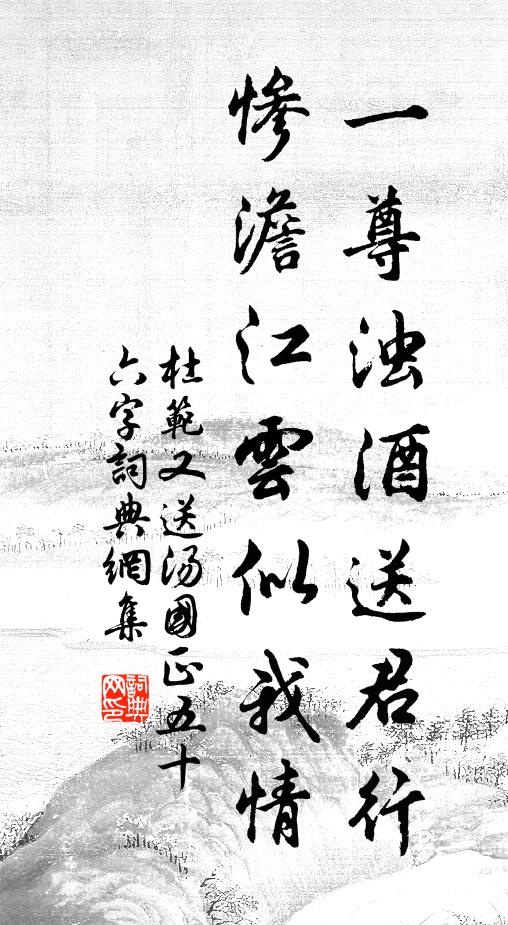 一尊浊酒送君行
惨澹江雲似我情
杜範又送汤國正五十
六字詞典網集
詞典
网印